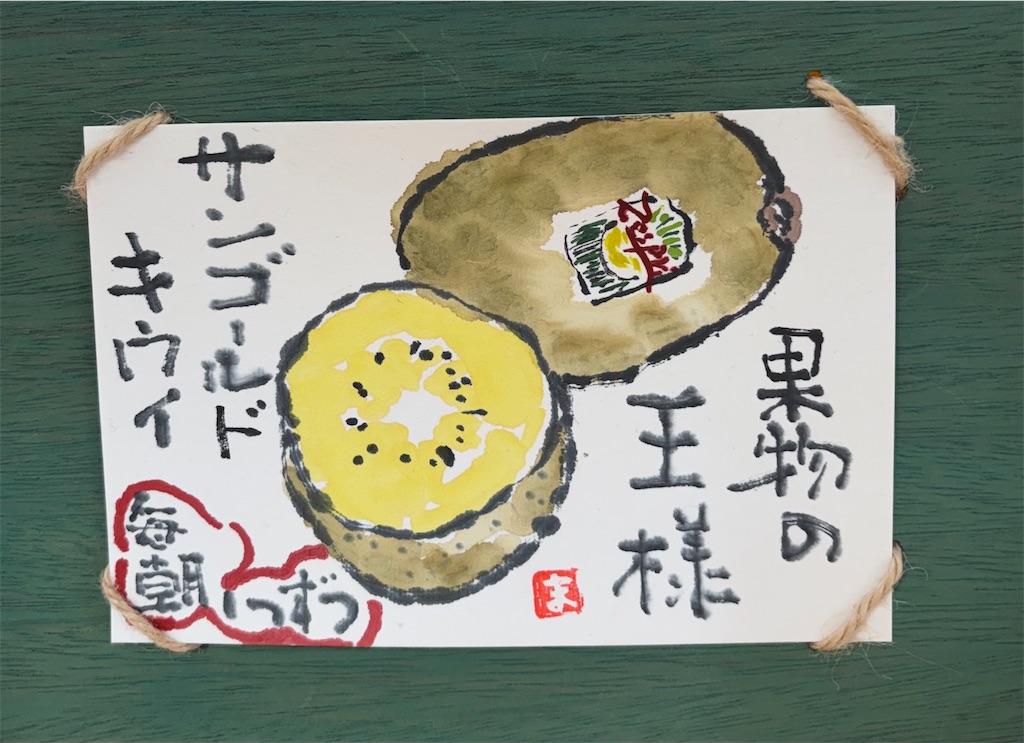 果物の
王様
Zespri
サンゴールド
キウイ
毎朝
1つずつ
ま